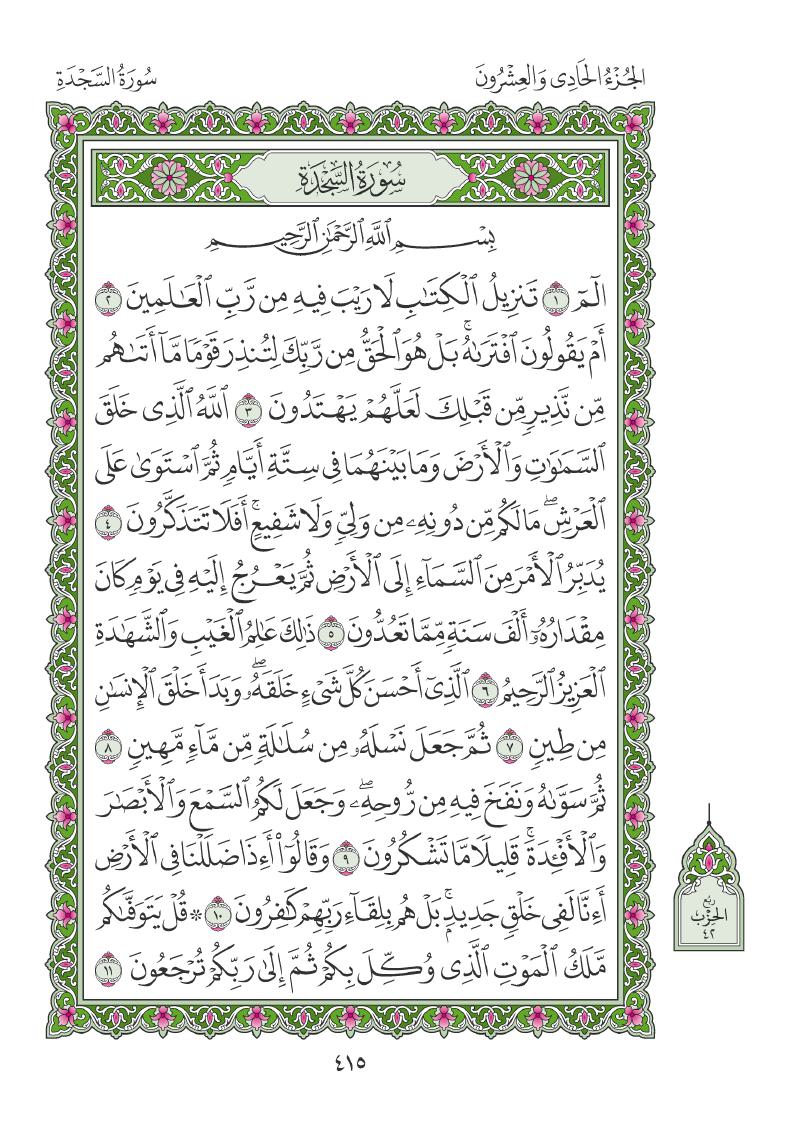 الجُزْءُ الحَادِى وَالعِشْرُونَ
سُورَةُ السَّجْدَةِ
سُورَةُ السَّجْدَةِ
بِسْمِ ٱللَّهِ ٱلرَّحْمَٰنِ ٱلرَّحِيمِ
الٓمٓ ١ تَنزِيلُ ٱلْكِتَٰبِ لَا رَيْبَ فِيهِ مِن رَّبِّ ٱلْعَٰلَمِينَ ٢
أَمْ يَقُولُونَ ٱفْتَرَىٰهُۚ بَلْ هُوَ ٱلْحَقُّ مِن رَّبِّكَ لِتُنذِرَ قَوْمًا مَّآ أَتَىٰهُم
مِّن نَّذِيرٍ مِّن قَبْلِكَ لَعَلَّهُمْ يَهْتَدُونَ ٣ ٱللَّهُ ٱلَّذِى خَلَقَ
ٱلسَّمَٰوَٰتِ وَٱلْأَرْضَ وَمَا بَيْنَهُمَا فِى سِتَّةِ أَيَّامٍ ثُمَّ ٱسْتَوَىٰ عَلَى
ٱلْعَرْشِۖ مَا لَكُم مِّن دُونِهِۦ مِن وَلِىٍّ وَلَا شَفِيعٍۚ أَفَلَا تَتَذَكَّرُونَ ٤
يُدَبِّرُ ٱلْأَمْرَ مِنَ ٱلسَّمَآءِ إِلَى ٱلْأَرْضِ ثُمَّ يَعْرُجُ إِلَيْهِ فِى يَوْمٍ كَانَ
مِقْدَارُهُۥٓ أَلْفَ سَنَةٍ مِّمَّا تَعُدُّونَ ٥ ذَٰلِكَ عَٰلِمُ ٱلْغَيْبِ وَٱلشَّهَٰدَةِ
ٱلْعَزِيزُ ٱلرَّحِيمُ ٦ ٱلَّذِىٓ أَحْسَنَ كُلَّ شَىْءٍ خَلَقَهُۥۖ وَبَدَأَ خَلْقَ ٱلْإِنسَٰنِ
مِن طِينٍ ٧ ثُمَّ جَعَلَ نَسْلَهُۥ مِن سُلَٰلَةٍ مِّن مَّآءٍ مَّهِينٍ ٨
ثُمَّ سَوَّىٰهُ وَنَفَخَ فِيهِ مِن رُّوحِهِۦۖ وَجَعَلَ لَكُمُ ٱلسَّمْعَ وَٱلْأَبْصَٰرَ
وَٱلْأَفْـِٔدَةَۚ قَلِيلًا مَّا تَشْكُرُونَ ٩ وَقَالُوٓا۟ أَءِذَا ضَلَلْنَا فِى ٱلْأَرْضِ
أَءِنَّا لَفِى خَلْقٍ جَدِيدٍۭۚ بَلْ هُم بِلِقَآءِ رَبِّهِمْ كَٰفِرُونَ ١٠ * قُلْ يَتَوَفَّىٰكُم
مَّلَكُ ٱلْمَوْتِ ٱلَّذِى وُكِّلَ بِكُمْ ثُمَّ إِلَىٰ رَبِّكُمْ تُرْجَعُونَ ١١
رُبْع
الحِزْبِ
٤٢
٤١٥